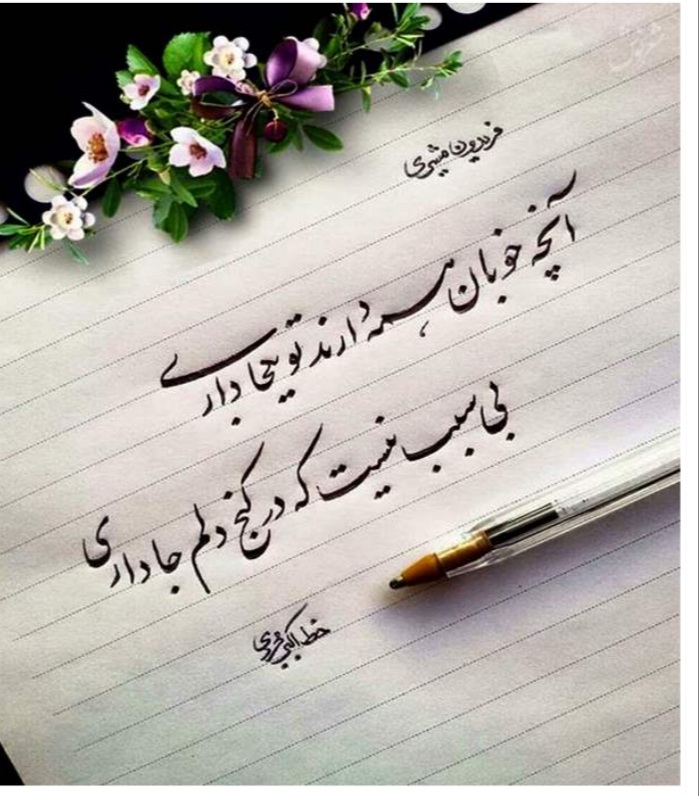 فریدون مشیری
آنچه خوبان همه دارند تو یکجا داری
بی سبب نیست که در کنج دلم جا داری
خط اکبر